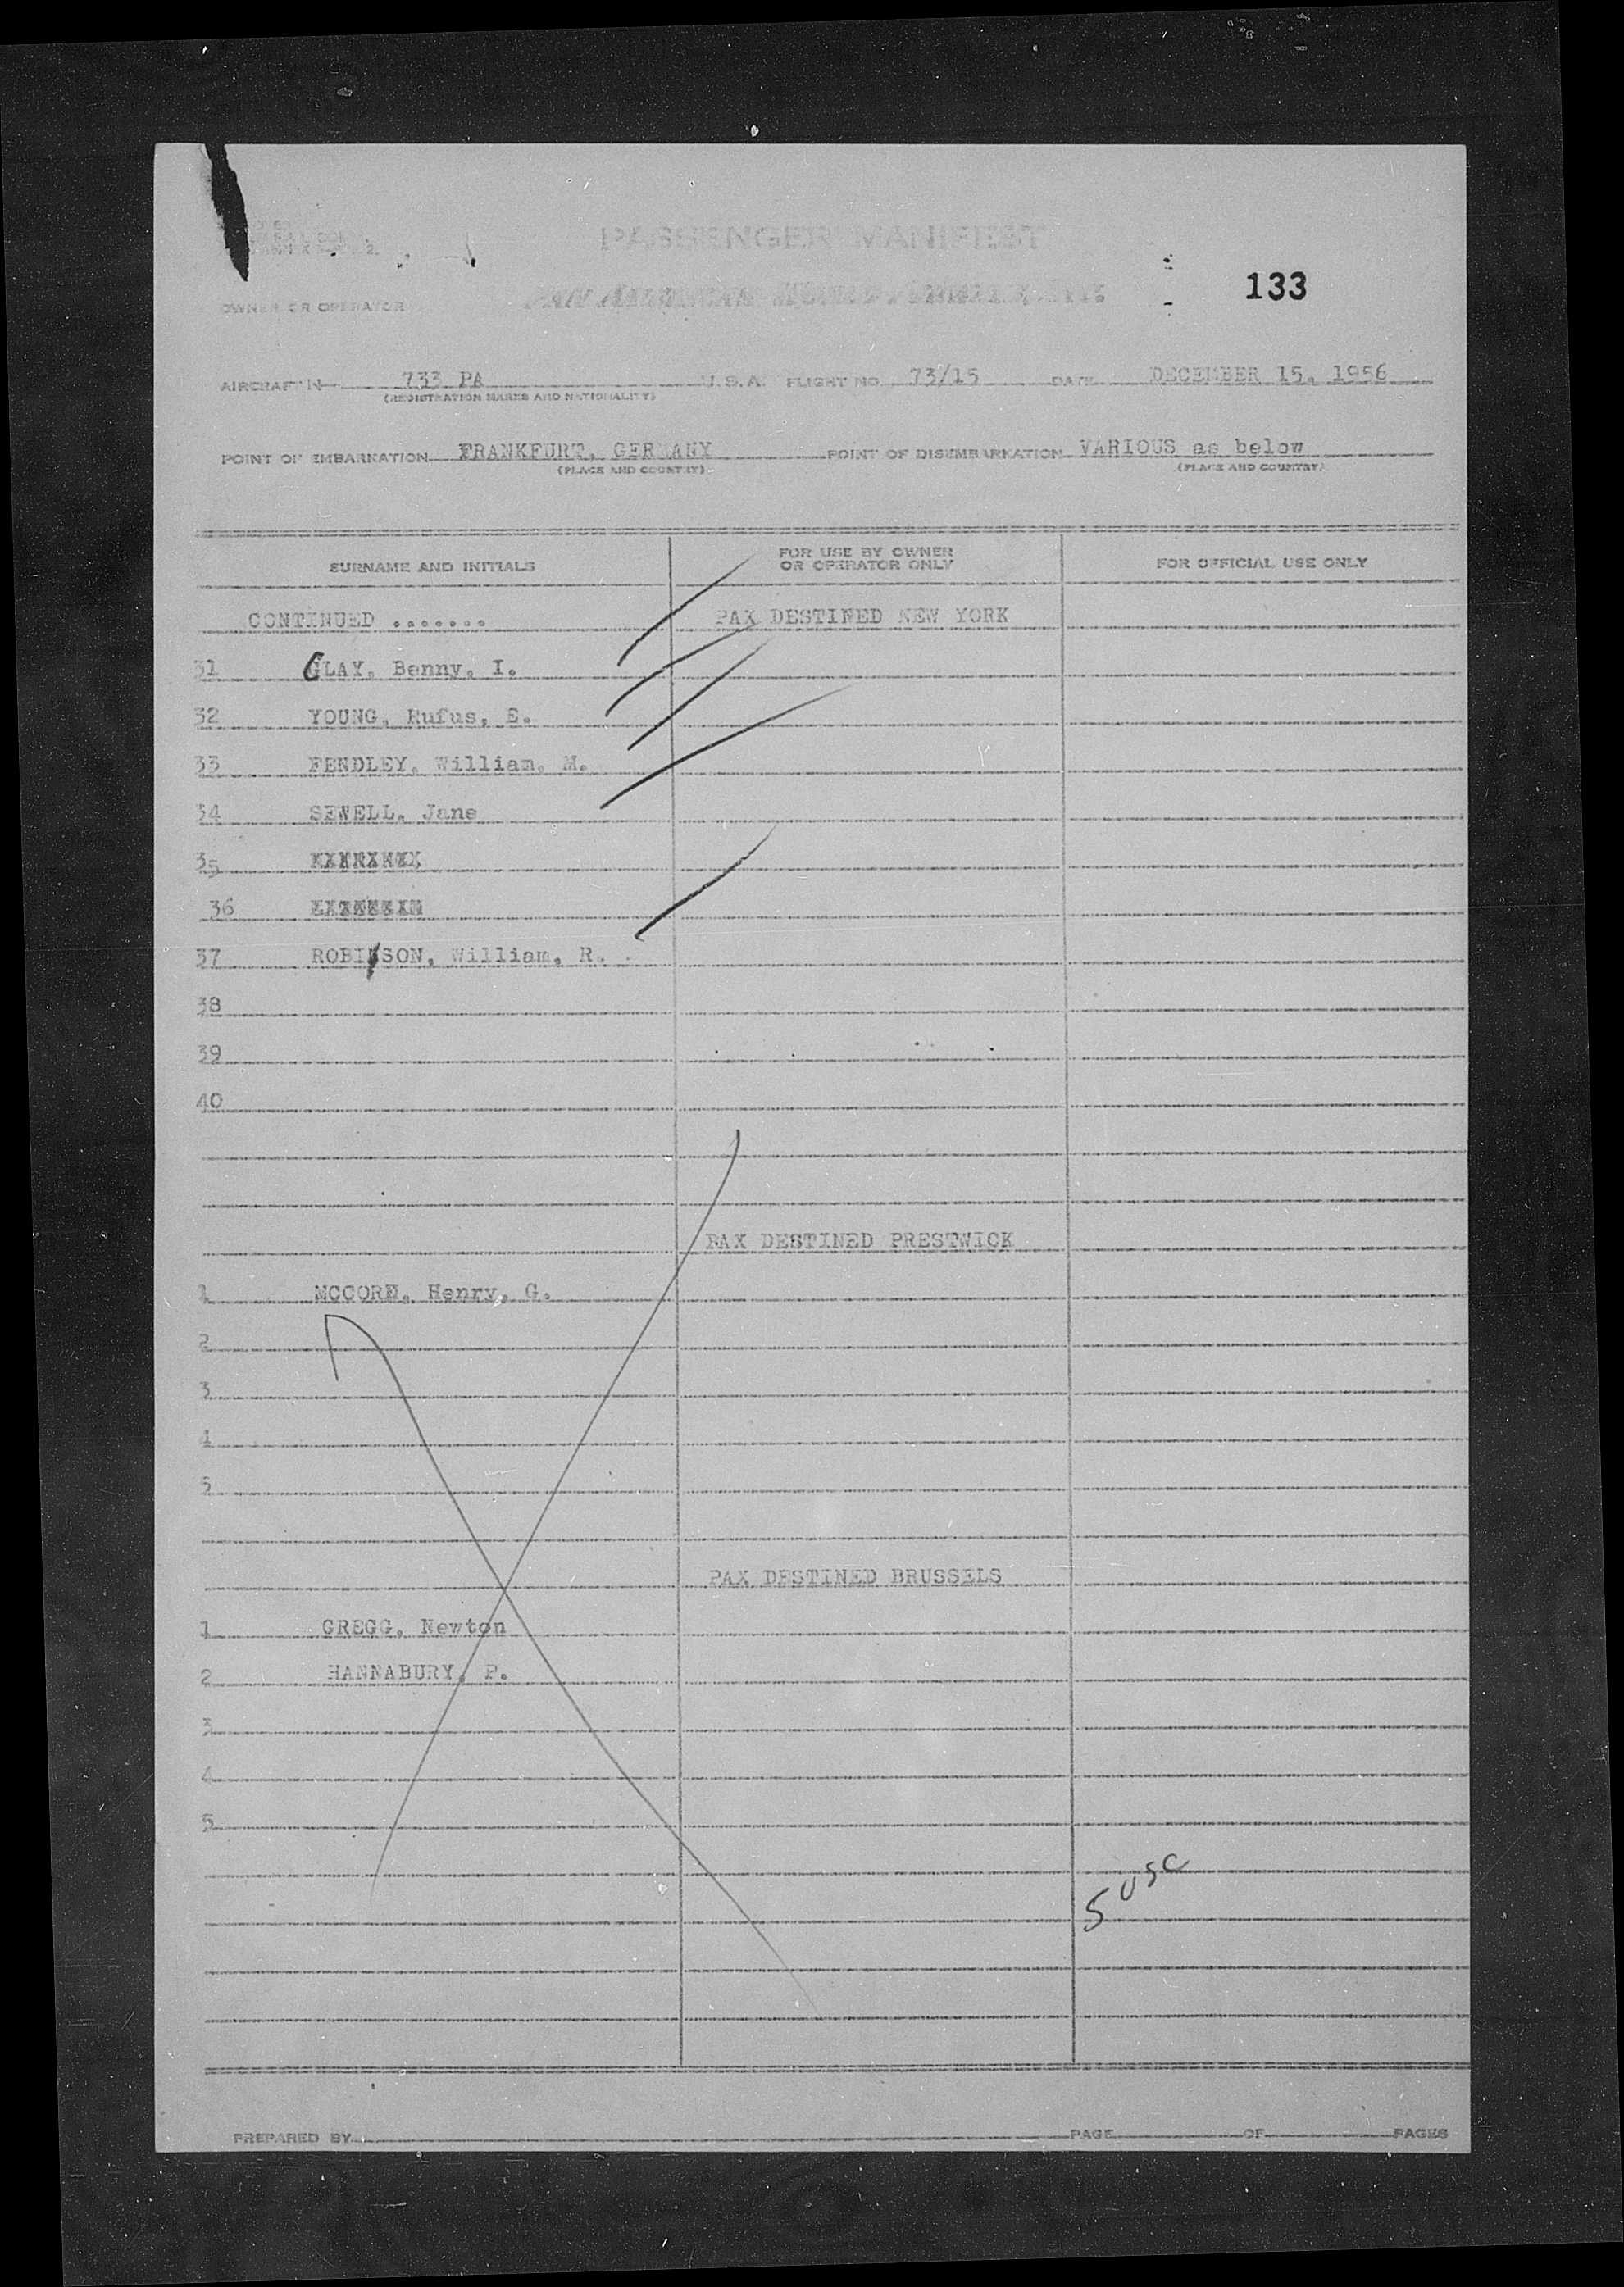 PASSENGER MANIFEST
133
OWNER OR OPERATOR PAN AMERICAN WORLD AIRWAYS, INC
AIRCRAFT N 733 PA U.S.A. FLIGHT NO 73/15 DATE DECEMBER 15, 1956
(REGISTRATION MARKS AND NATIONALITY)
POINT OF EMBARKATION FRANKFURT, GERMANY POINT OF DISEMBARKATION VARIOUS as below
(PLACE AND COUNTRY) (PLACE AND COUNTRY)
SURNAME AND INITIALS FOR USE BY OWNER OR OPERATOR ONLY FOR OFFICIAL USE ONLY
CONTINUED ....... PAX DESTINED NEW YORK
31 CLAY, Benny, I.
32 YOUNG, Rufus, E.
33 FENDLEY, William, M.
34 SEWELL, Jane
35
36
37 ROBINSON, William, R.
38
39
40
PAX DESTINED PRESTWICK
1 MCCORD, Henry, G.
2
3
4
5
PAX DESTINED BRUSSELS
1 GREGG, Newton
2 HANNABURY, P.
3
4
5
5 USC
PREPARED BY PAGE OF PAGES